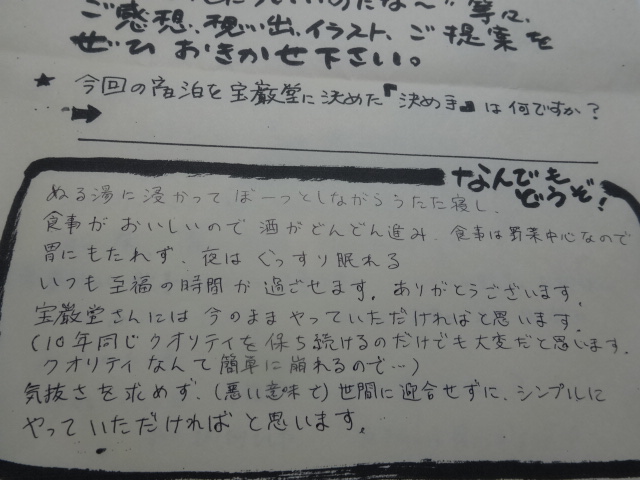 ご感想、思い出、イラスト、ご提案を
ぜひ おきかせ下さい。
★ 今回の宿泊を宝巌堂に決めた『決め手』は何ですか?
➡
なんでも
どうぞ!
ぬる湯に浸かって ぼーっとしながらうたた寝し、
食事が おいしいので 酒がどんどん進み、食事は野菜中心なので
胃にもたれず、夜は ぐっすり眠れる
いつも 至福の時間が 過ごせます。ありがとうございます。
宝巌堂さんには 今のまま やっていただければと思います。
(10年同じクオリティを保ち続けるのだけでも大変だと思います。
クオリティなんて簡単に崩れるので…)
気抜さを求めず、(悪い意味で)世間に迎合せずに、シンプルに
やって いただければ と思います。